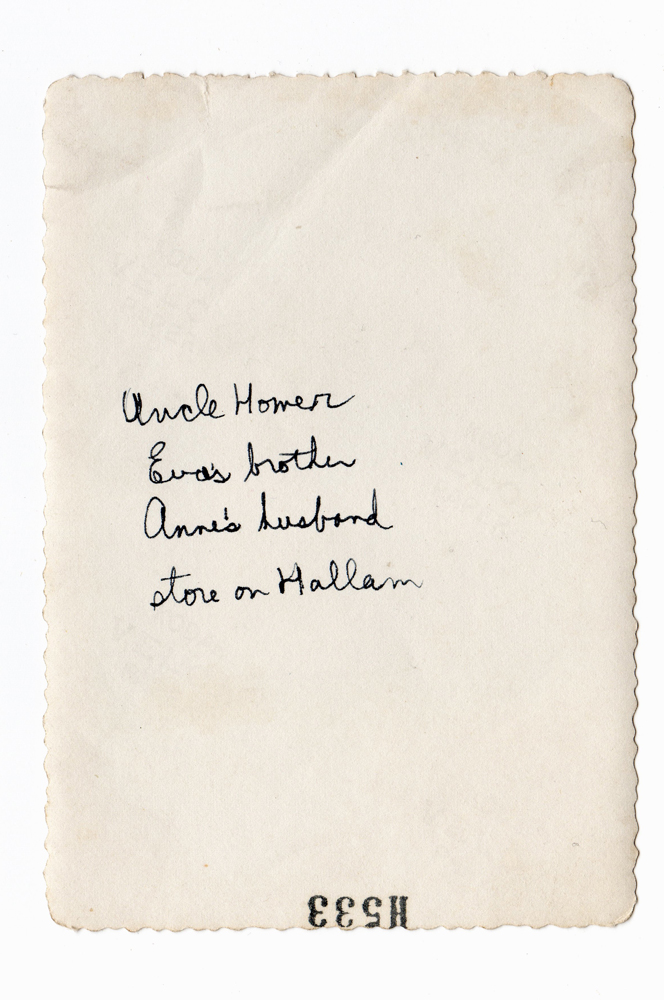 Uncle Homer
Eva's brother
Anne's husband
store on Hallam
H533